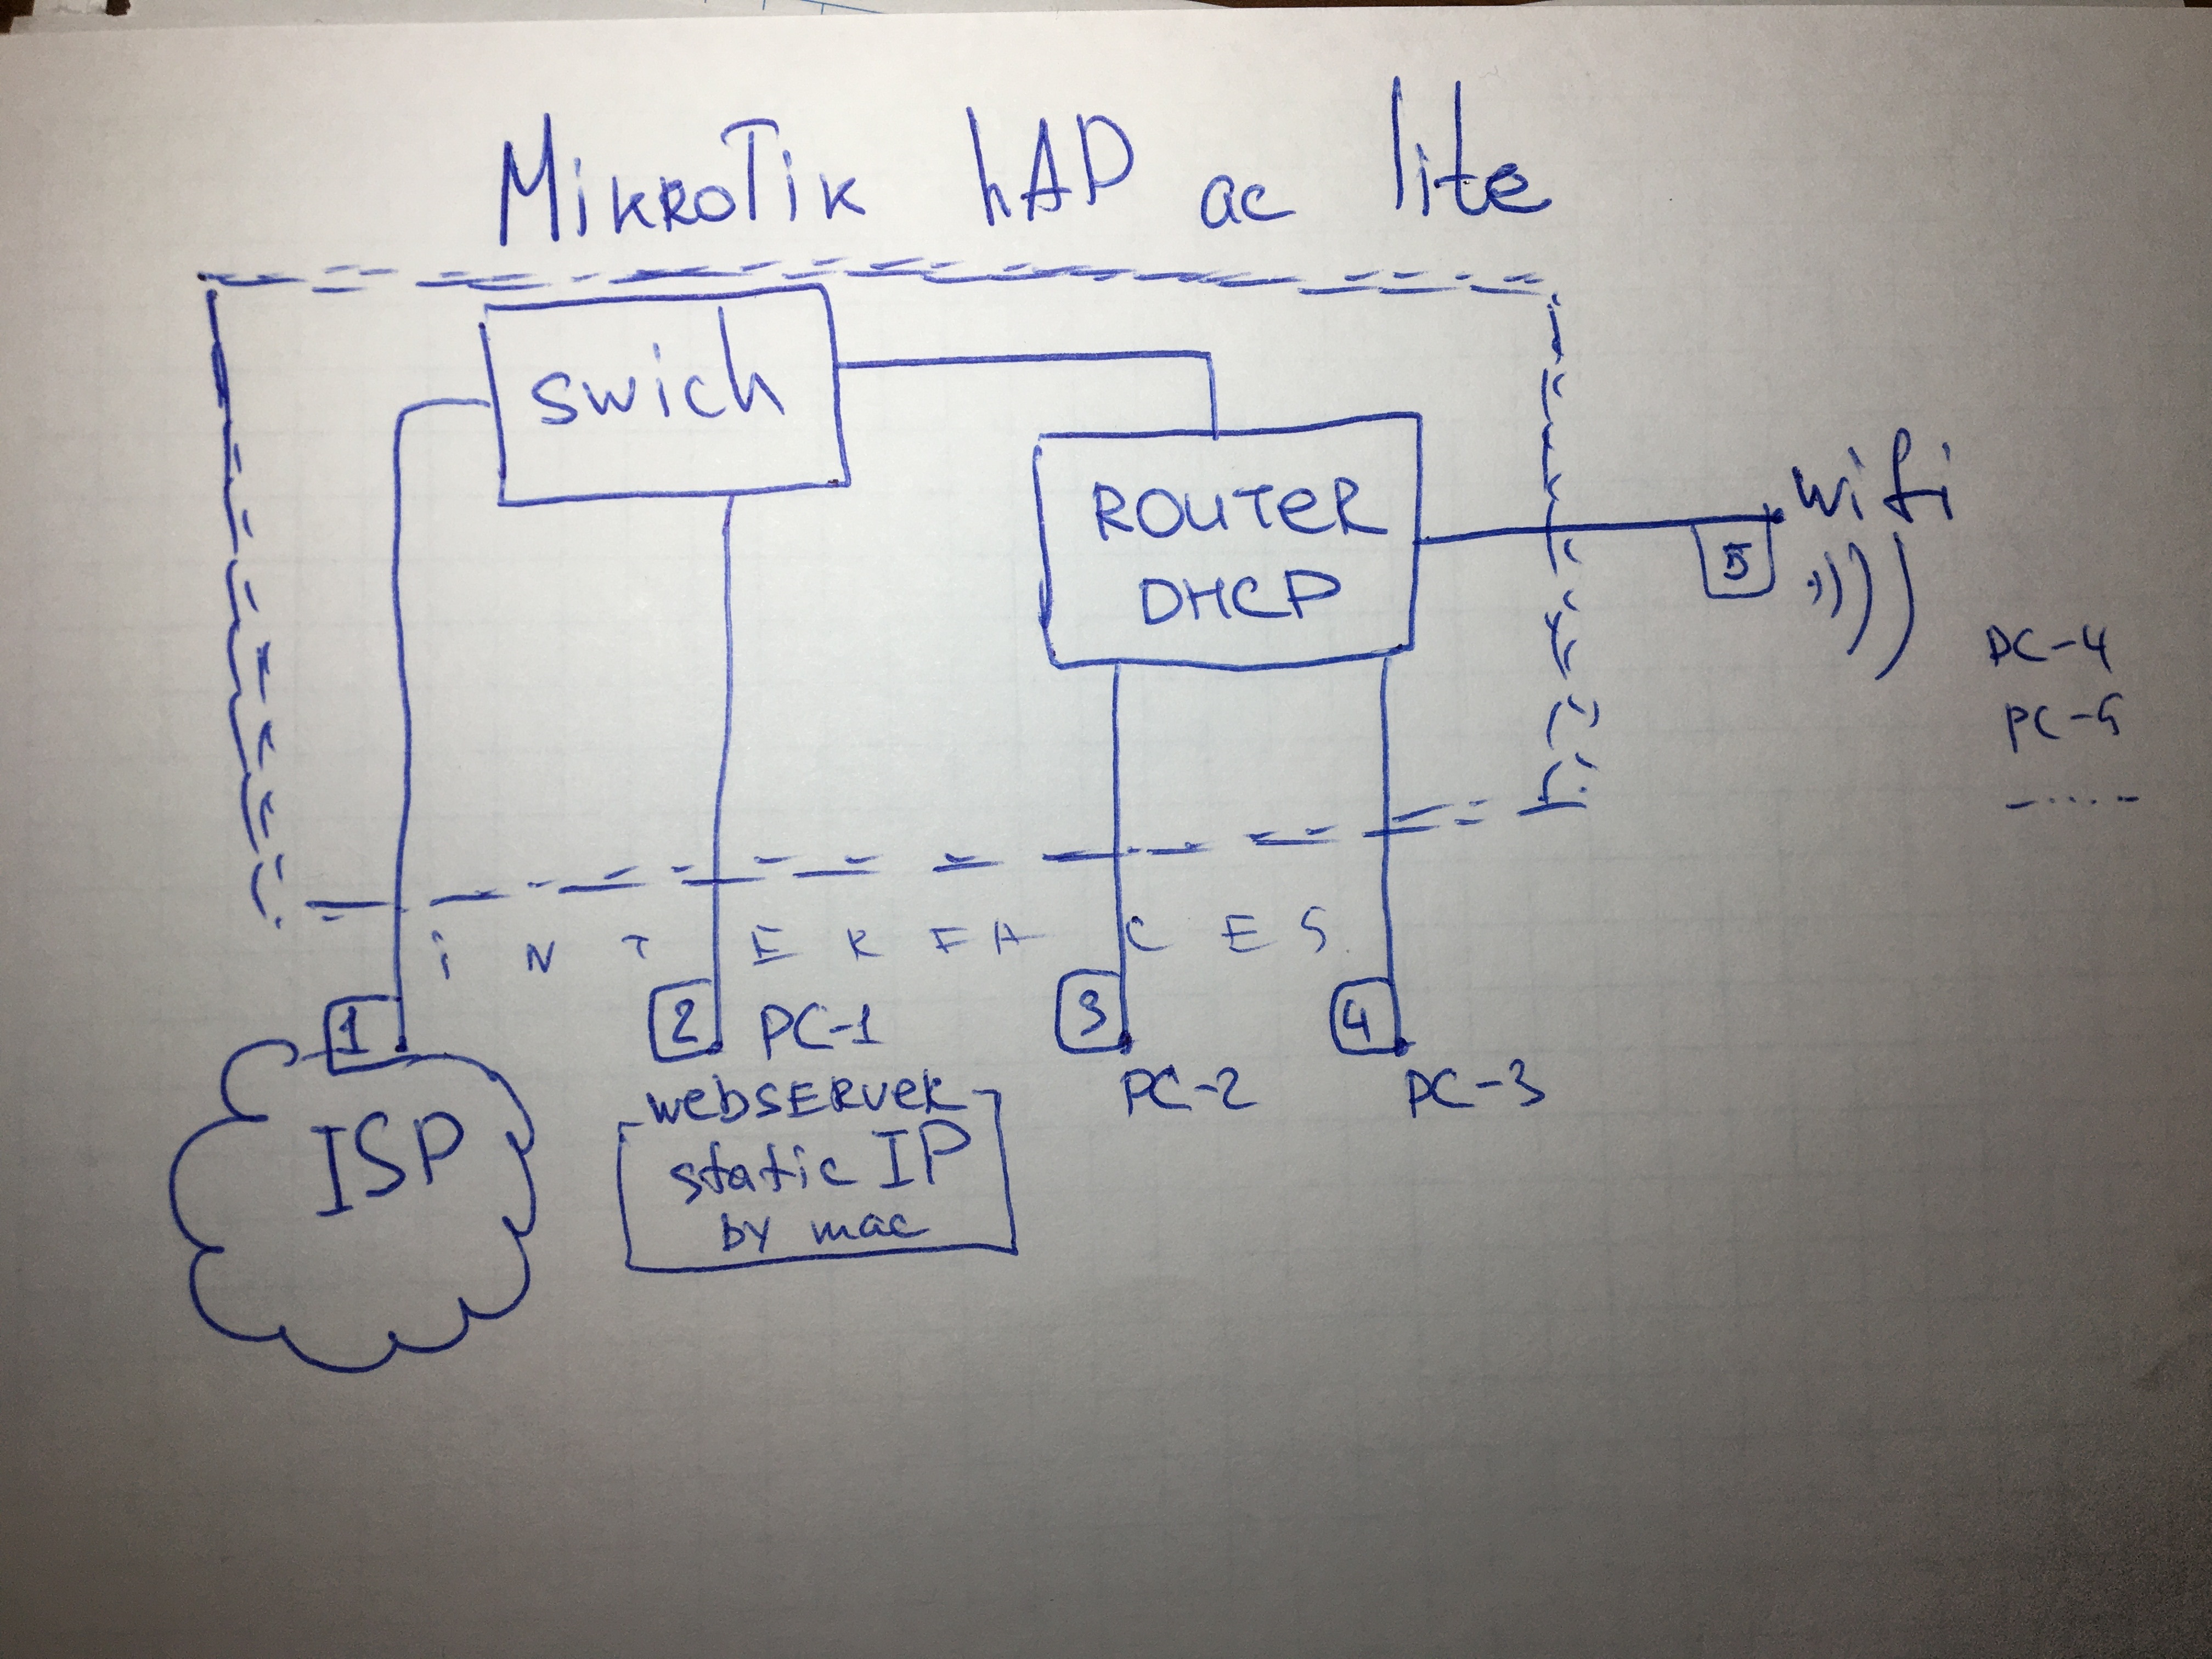 MikroTik hAP ac lite
swich
ROUTER
DHCP
wifi
5
PC-4
PC-5
INTERFACES
1
2
PC-1
3
4
PC-2
PC-3
webserver
static IP
by mac
ISP